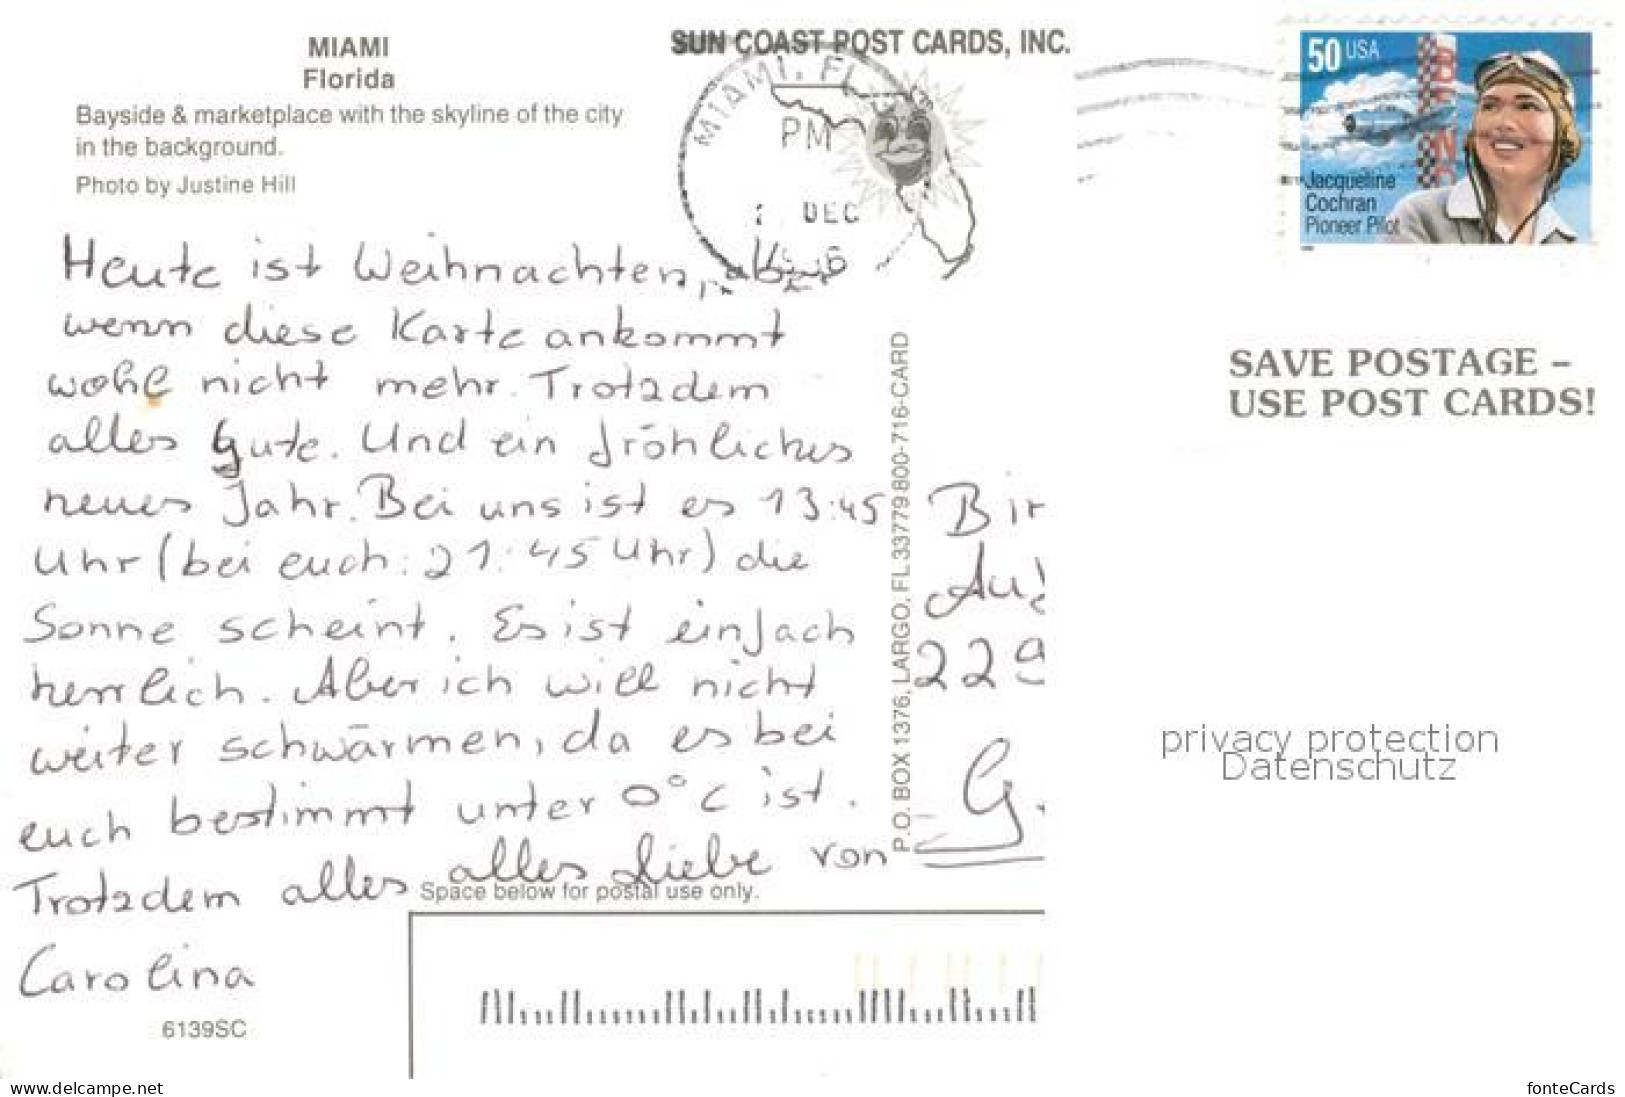 MIAMI
Florida
Bayside & marketplace with the skyline of the city
in the background.
Photo by Justine Hill
SUN COAST POST CARDS, INC.
MIAMI, FL
PM
DEC
50 USA
BENDIX
Jacqueline
Cochran
Pioneer Pilot
SAVE POSTAGE –
USE POST CARDS!
Heute ist Weihnachten, aber
wenn diese Karte ankommt
wohl nicht mehr. Trotzdem
alles Gute. Und ein fröhliches
neues Jahr. Bei uns ist es 13:45
Uhr (bei euch: 21:45 Uhr) die
Sonne scheint. Es ist einfach
herrlich. Aber ich will nicht
weiter schwärmen, da es bei
euch bestimmt unter 0°C ist.
Trotzdem alles alles Liebe von
Carolina
6139SC
P.O. BOX 1376, LARGO, FL 33779 800-716-CARD
Bir
Au
229
G.
privacy protection
Datenschutz
Space below for postal use only.
www.delcampe.net
fonteCards